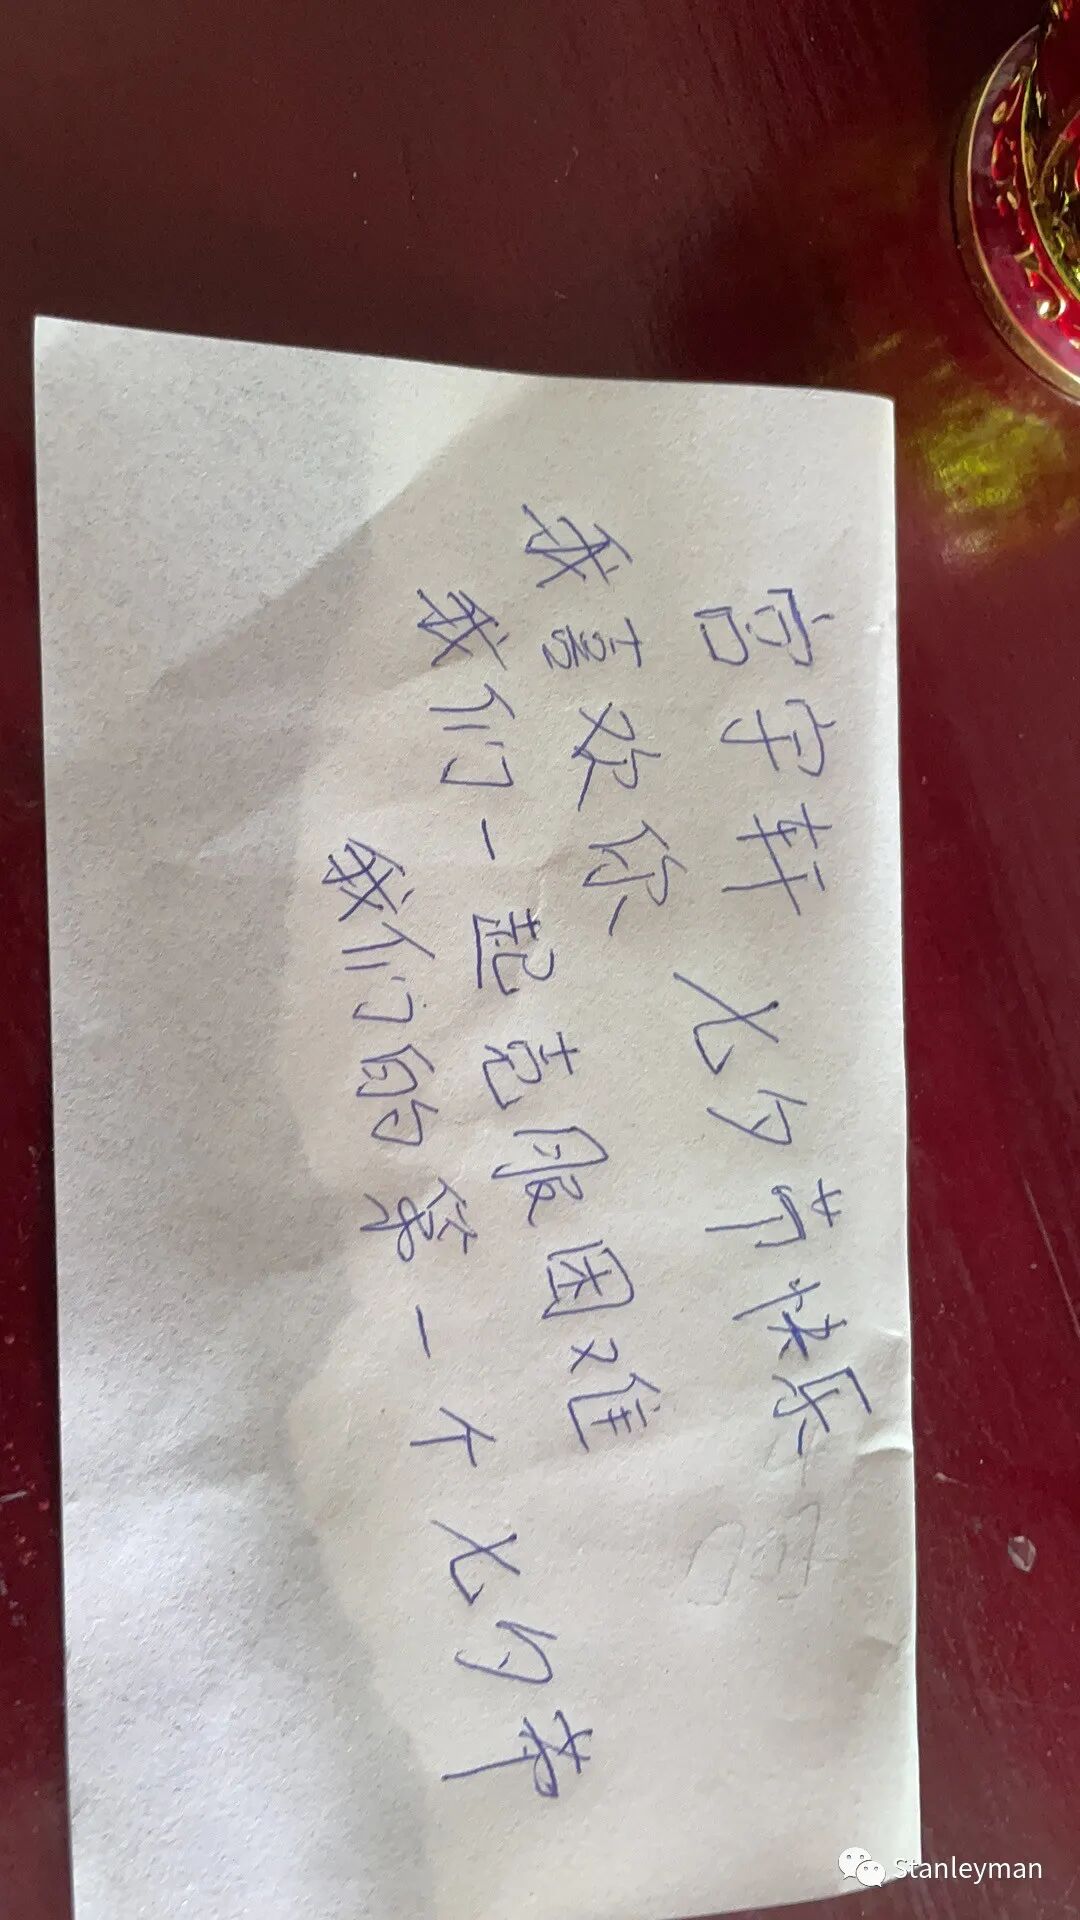 宫宇轩 七夕节快乐
我喜欢你
我们一起克服困难
我们的第一个七夕节
Stanleyman